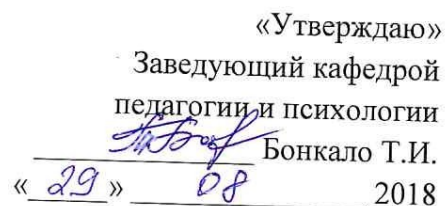 «Утверждаю»
Заведующий кафедрой
педагогии и психологии
Бонкало Т.И.
« 29 » 08 2018